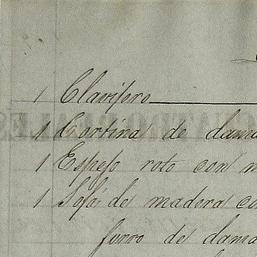 1 Clavijero
1 Cortina de dama
1 Espejo roto con m
1 Sofá de madera co
forro de dama